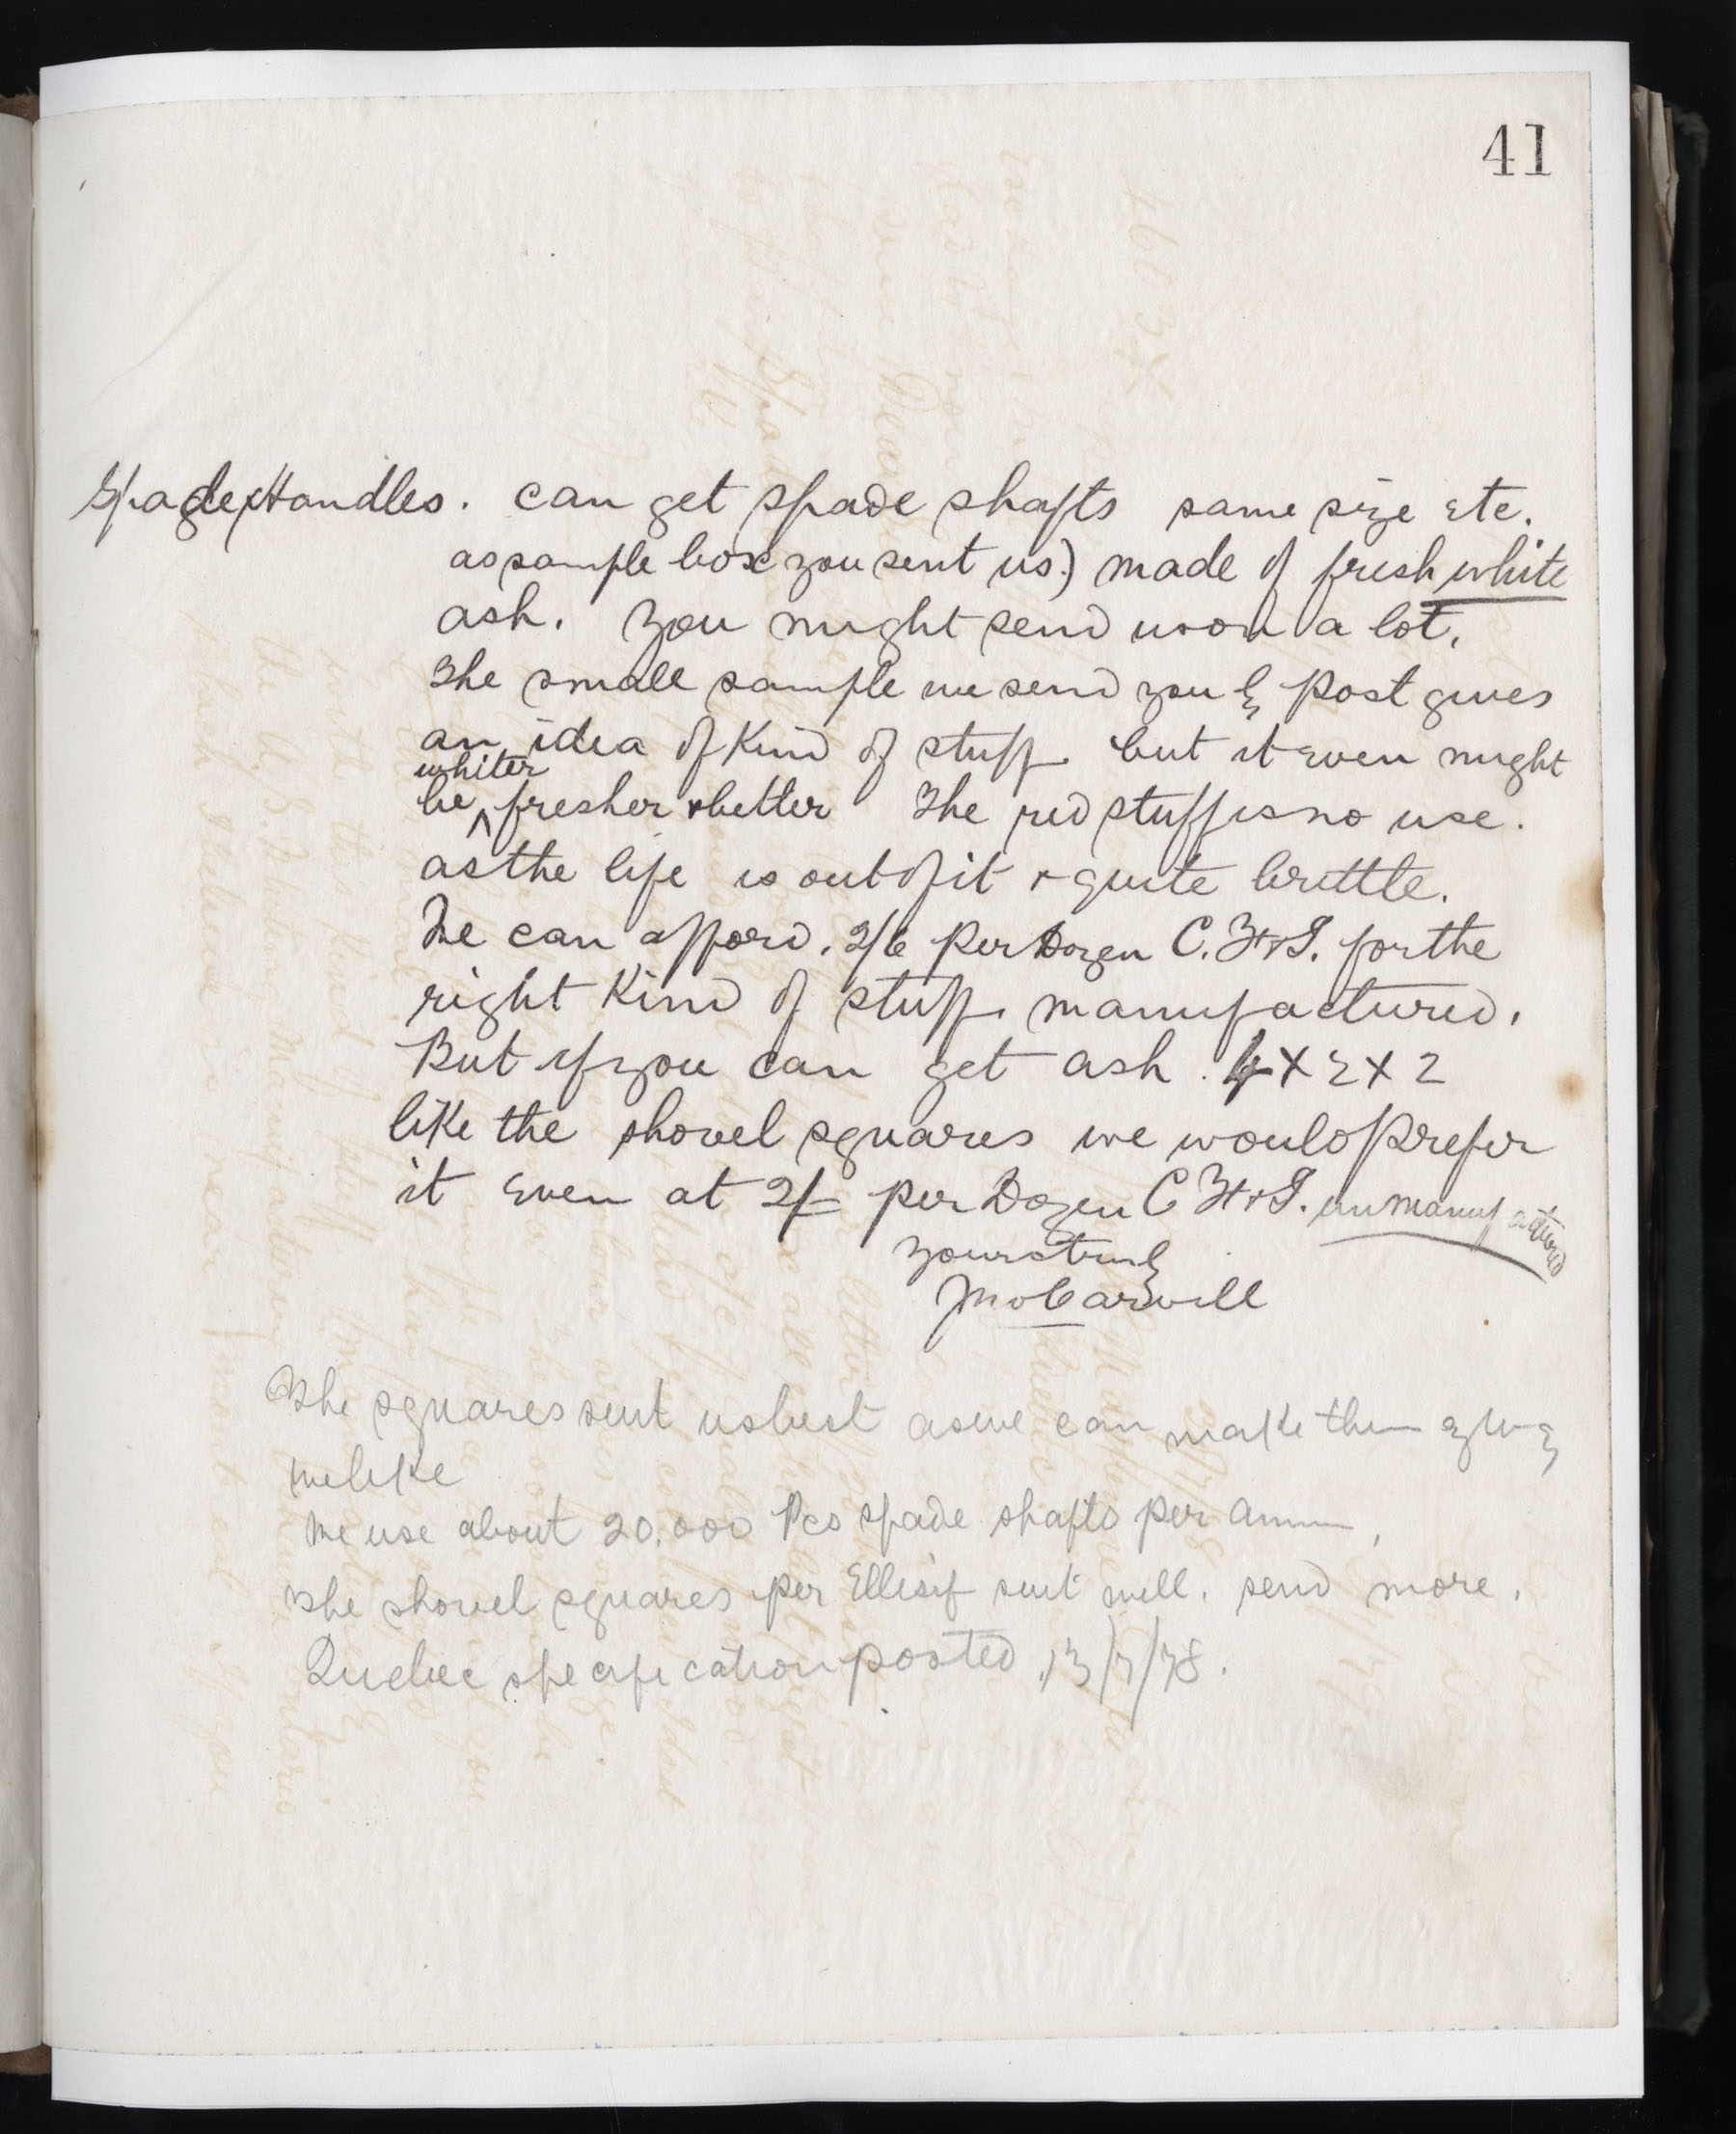 41
Spade Handles. can get spade shafts same size etc.
as sample box you sent us) made of fresh white
ash. You might send us on a lot.
The small sample we send you by post gives
an idea of kind of stuff but it even might
whiter
be ^ fresher & better The red stuff is no use.
as the life is out of it & quite brittle.
We can afford. 2/6 per Dozen C. F & I. for the
right kind of stuff manufactured.
But if you can get ash. 4 x 2 x 2
like the shovel squares we would prefer
it even at 2/- per Dozen C F & I. unmanufactured
Yours truly
Carvill
The squares suit us best as we can make them
we like
We use about 20.000 Pcs spade shafts per Annum,
The shovel squares per Ellisif suit well. send more.
Quebec specification posted 13/7/78.